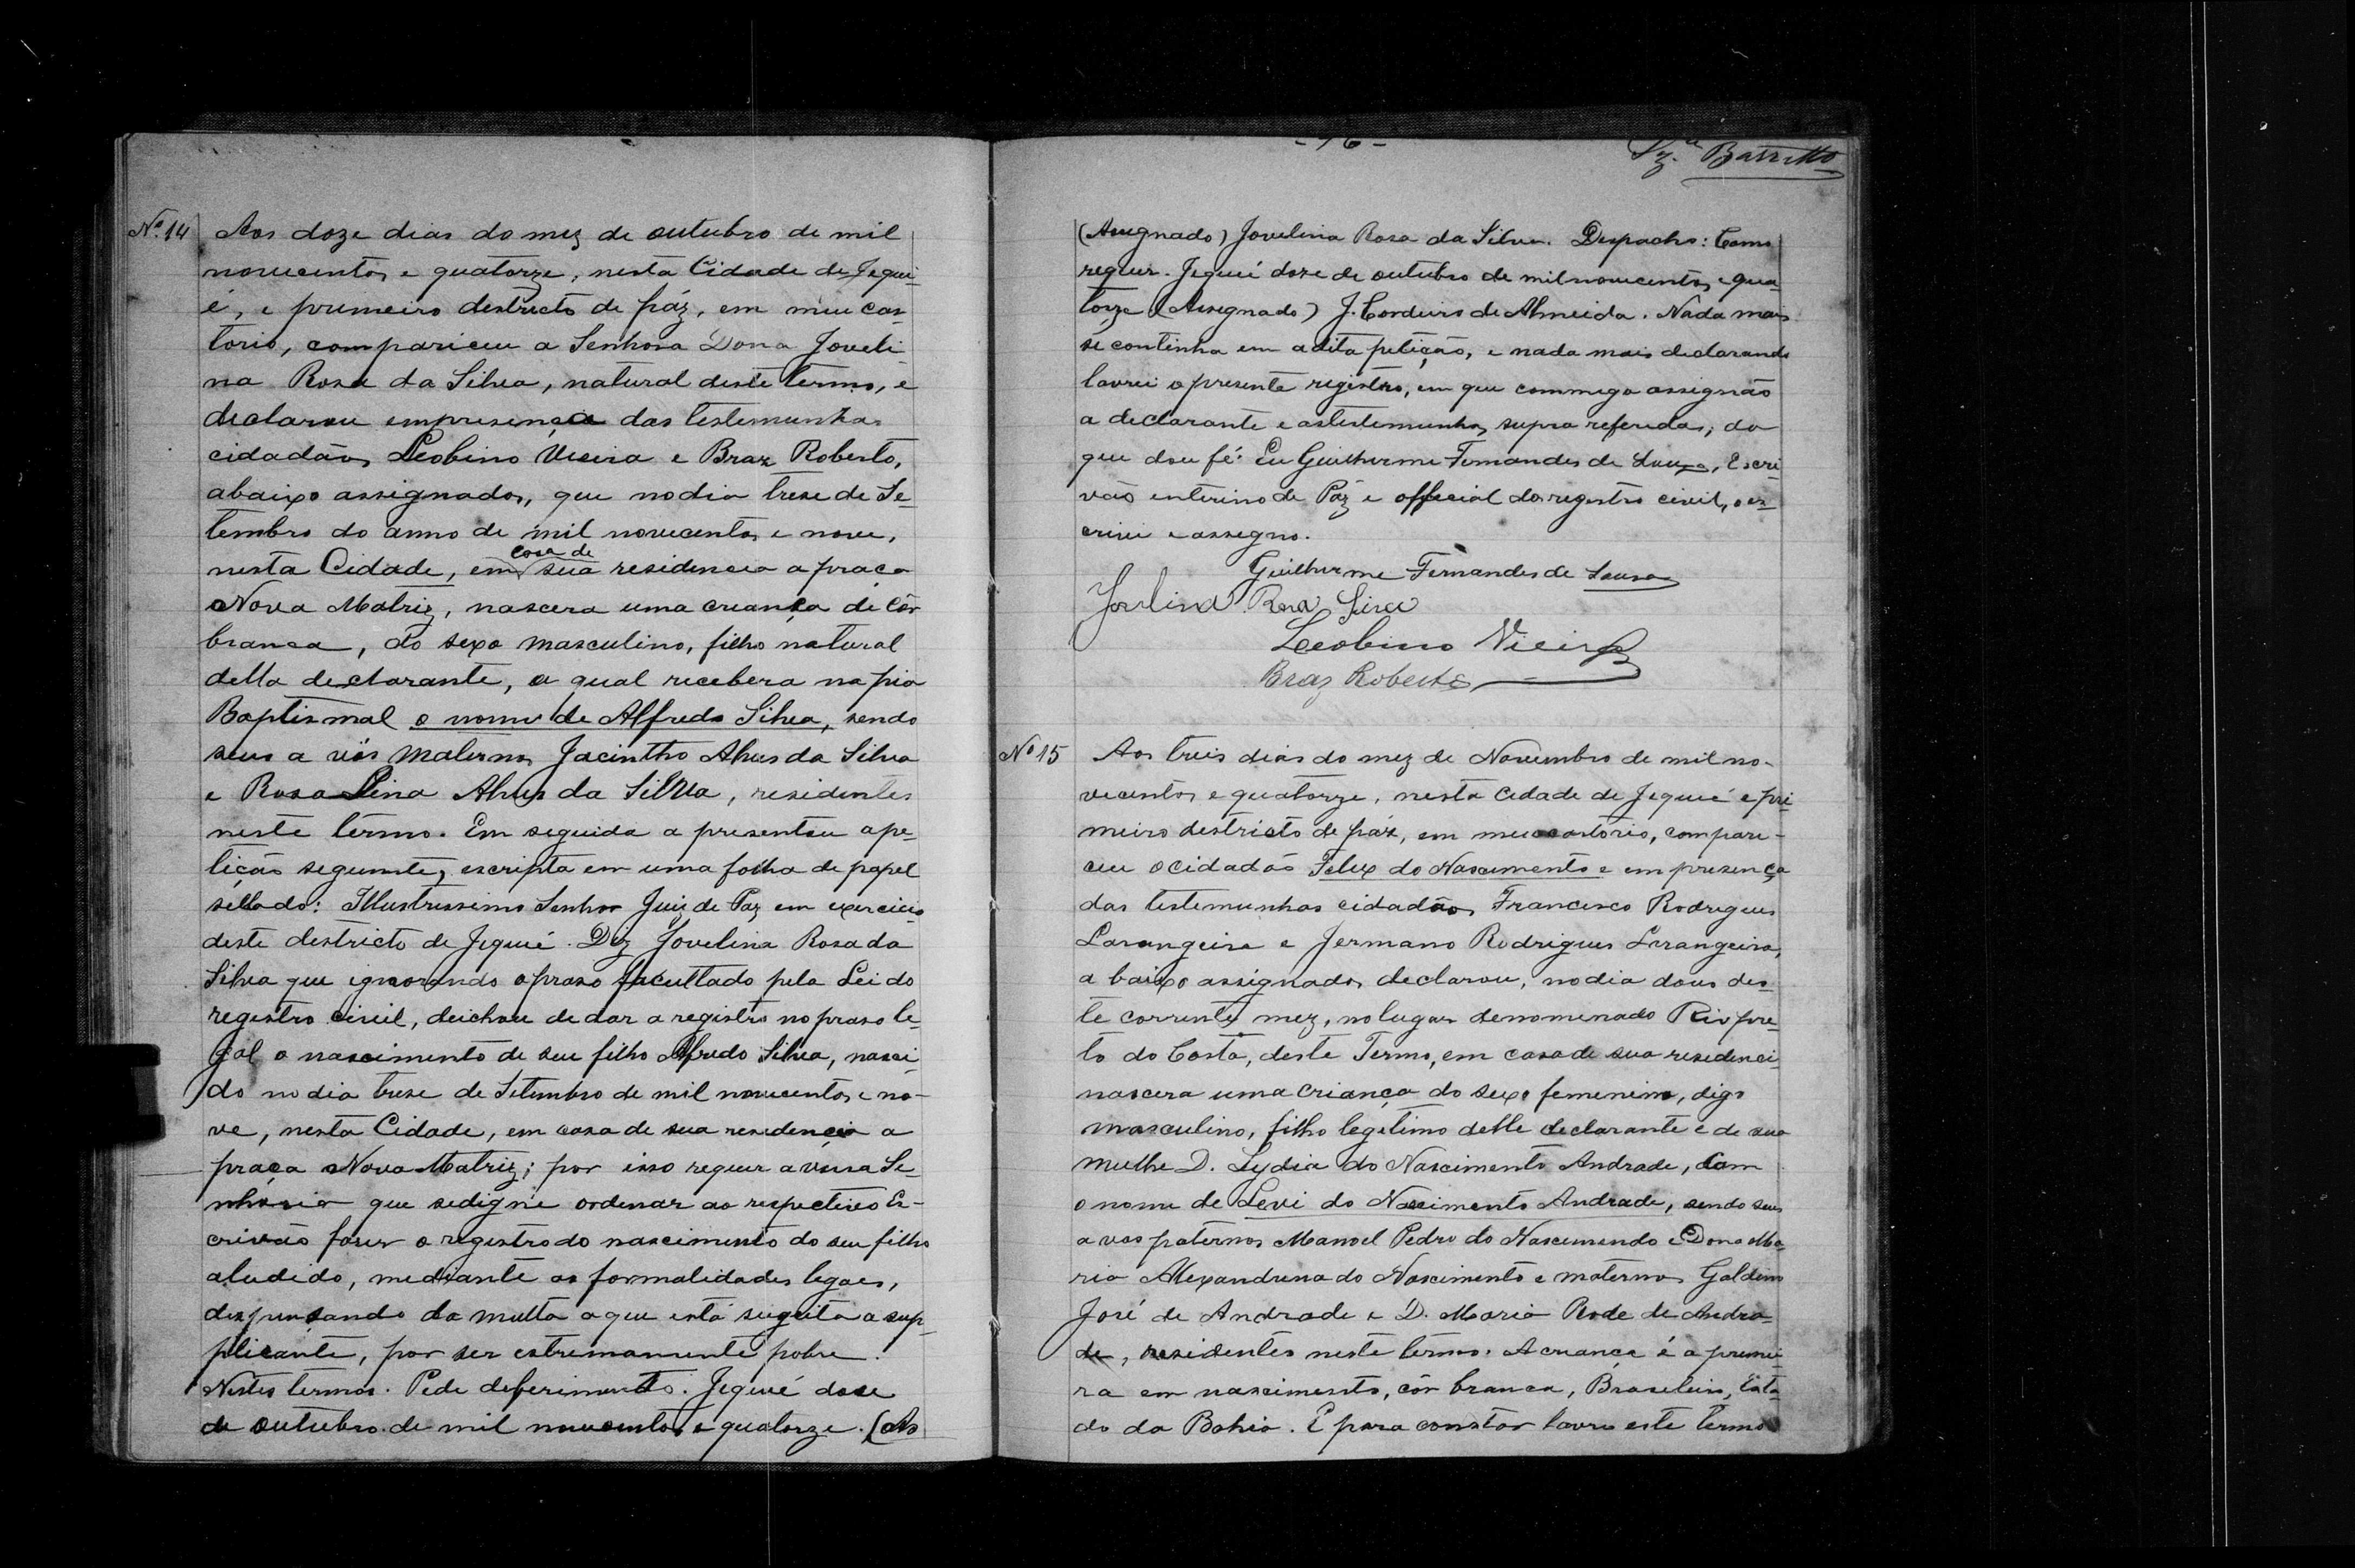 Nº 14 Aos doze dias do mez de outubro de mil
novecentos e quatorze, nesta Cidade de Jequi-
é, e primeiro destricto de páz, em meu car-
torio, compariceu a Senhora Dona Joveli
na Rosa da Silva, natural deste termo, e
declarou em presença das testemunhas
cidadãos Leobino Vieira e Braz Roberto,
abaixo assignados, que no dia treze de Se-
tembro do anno de mil novecentos e nove,
nesta Cidade, em casa de sua residencia a praça
Nova Matriz, nascera uma creança de côr
branca, do sexo masculino, filho natural
della declarante, a qual recebera na pia
Baptismal o nome de Alfredo Silva, sendo
seus a vós maternos Jacintho Alves da Silva
e Rosa Lina Alves da Silva, residentes
neste termo. Em seguida a presentou a pe-
tição seguinte, escripta em uma folha de papel
sellado: Illustrissimo Senhor Juiz de Paz em exercicio
deste destricto de Jequié. Diz Jovelina Rosa da
Silva que ignorando o praso facultado pela Lei do
registro civil, deichou de dar a registro no praso le-
gal o nascimento de seu filho Alfredo Silva, nasci-
do no dia treze de Setembro de mil novecentos e no-
ve, nesta Cidade, em casa de sua residencia a
praça Nova Matriz; por isso requer a vossa Se-
nhoria que se digne ordenar ao respectivo Es-
crivão faser o registro do nascimento do seu filho
aludido, mediante as formalidades legaes,
despensando da multa a que está sugeita a sup-
plicante, por ser estremamente pobre.
Nestes termos. Pede deferimento. Jequié dose
de outubro de mil novecentos e quatorze. (As
-16-
Barretto
(Assignado) Jovelina Rosa da Silva. Despacho: Como
requer. Jequié doze de outubro de mil novecentos e qua-
torze (Assegnado) J. Cordeiro de Almeida. Nada mais
se continha em a dita petição, e nada mais declarando
lavrei o presente registro, em que commego assignão
a declarante e as testemunhas supra referidas; do
que dou fé. Eu Guilherme Fernandes de Souza, Escri-
vão enterino de Páz e official do registro civil, o es-
crivi e assegno.
Guilherme Fernandes de Sousa
Jovlina Rosa Silva
Leobino Vieira
Braz Roberto
Nº 15 Aos treis dias do mez de Novembro de mil no-
vecentos e quatorze, nesta Cidade de Jequié e pri-
meiro destricto de páz, em meu cartorio, compare-
ceu o cidadão Felix do Nascimento e em presença
das testemunhas cidadãos Francisco Rodrigues
Larangeira e Jermano Rodrigues Larangeira,
a baixo assignados declarou, no dia dous des-
te corrente mez, no lugar denomenado Rio pre-
to do Costa, deste Termo, em casa de sua residenci-
nascera uma criança do sexo femenino, digo
masculino, filho legitimo delle declarante e de sua
mulhe D. Lydia do Nascimento Andrade, com
o nome de Levi do Nascimento Andrade, sendo seus
a vos paternos Manoel Pedro do Nascemendo e Dona Ma-
ria Alexandrina do Nascimento e maternos Galdino
José de Andrade e D. Maria Rode de Andra-
de, residentes neste termo. A creança é a primei-
ra em nascimento, côr branca, Brasileiro, Esta-
do da Bahia. E para constar lavro este termo